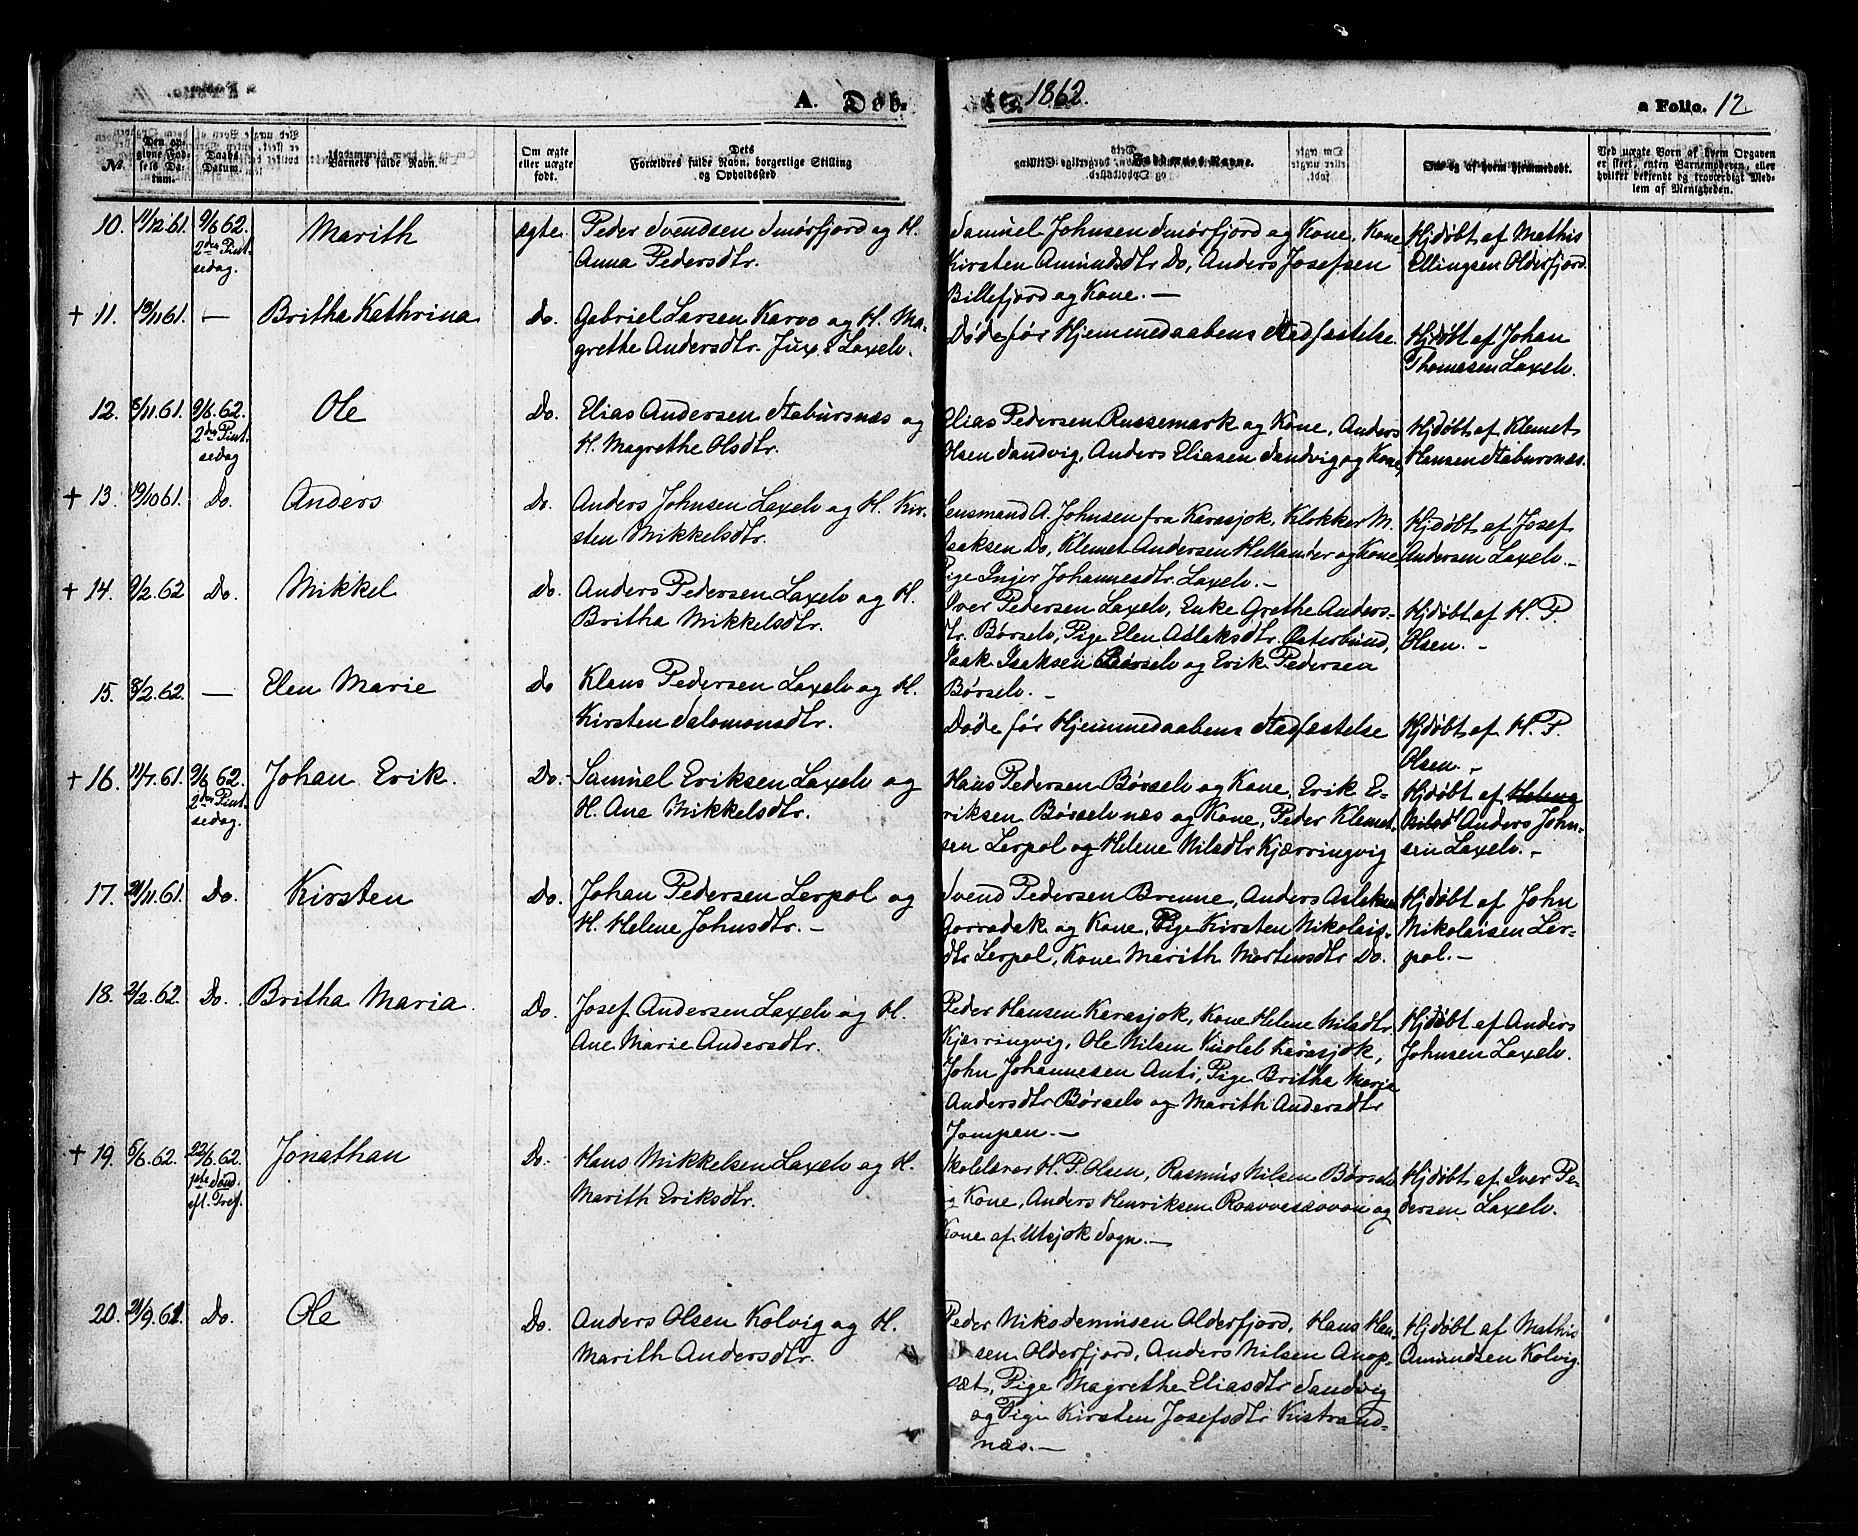 A. Døb-
te. 1862.
a Folio. 12
No.
Den opgivne Fødsels Datum.
Daabs Datum.
Barnets fulde Navn.
Om ægte eller uægte født.
Dets Forældres fulde Navn, borgerlige Stilling og Opholdssted.
Faddernes Navne.
Om og af hvem hjemmedøbt.
Ved uægte Børn af hvem Opgaven er skeet, enten Barnemoderen, eller hvilket bekjendt og troværdigt Medlem af Menigheden.
10. 11/12.61. 9/6 62. 2den Pintsedag. Marith ægte.
Peder Svendsen Smørfjord og H.
Anna Pedersdtr.
Samuel Johnsen Smørfjord og Kone, Kone
Kirsten Amundsdtr Do, Anders Josefsen
Billefjord og Kone. —
Hjdøbt af Mathis
Ellingsen Olderfjord.
+ 11. 19/11 61. — Britha Kathrina Do.
Gabriel Larsen Karvo og H. Ma-
grethe Andersdtr. Jux & Laxelv.
Døde før Hjemmedaabens Stadfæstelse.
Hjdøbt af Johan
Thomesen Laxelv.
12. 8/11 61. 9/6. 62. 2den Pintsedag Ole Do.
Elias Andersen Stabursnæs og
H. Magrethe Olsdtr.
Elias Pedersen Russemark og Kone, Anders
Olsen Sandvig, Anders Eliasen Sandvig og Kone,
Hjdøbt af Klemet
Hansen Stabursnæs.
+ 13. 19/10 61. Do. Anders Do.
Anders Johnsen Laxelv og H. Kir-
sten Mikkelsdtr.
Lensmand A. Johnsen fra Karasjok, Klokker M.
Isaksen Do, Klemet Andersen Hellander og Kone,
Pige Inger Johannesdtr. Laxelv. —
Hjdøbt af Josef
Andersen Laxelv. —
+ 14. 9/2. 62 Do. Mikkel Do.
Anders Pedersen Laxelv og H.
Britha Mikkelsdtr.
Iver Pedersen Laxelv, Enke Grethe Anders-
dtr. Børselv, Pige Elen Aslaksdtr. Østerbund,
Isak Isaksen Børselv og Erik Pedersen
Børselv. —
Hjdøbt af H. P.
Olsen. —
15. 8/2. 62. — Elen Marie Do
Klaus Pedersen Laxelv og H.
Kirsten Salomonsdtr.
Døde før Hjemmedaabens Stadfæstelse
Hjdøbt af H. P.
Olsen. —
+ 16. 11/7. 61. 9/6 62. 2den Pintsedag. Johan Erik. Do.
Samuel Eriksen Laxelv og
H. Ane Mikkelsdtr.
Hans Pedersen Børselv og Kone, Erik E-
riksen Børselvnæs og Kone, Peder Klemet-
sen Lerpol og Helene Nilsdtr Kjærringvig
Hjdøbt af Helene
Nilsd Anders John-
sen Laxelv. —
17. 21/11. 61. Do. Kirsten Do.
Johan Pedersen Lerpol og
H. Helene Johnsdtr. —
Svend Pedersen Brenne, Anders Aslaksen
Gorradak og Kone, Pige Kirsten Nikolais-
dtr Lerpol, Kone Marith Mortensdtr Do.
Hjdøbt af John
Nikolaisen Ler-
pol. —
18. 2/2. 62. Do. Britha Maria. Do.
Josef Andersen Laxelv og H.
Ane Marie Andersdtr.
Peder Hansen Karasjok, Kone Helene Nilsdtr.
Kjærringvig, Ole Nilsen Karasjok,
John Johannesen Anti, Pige Britha Maria
Andersdtr Børselv og Marith Andersdtr
Jompen. —
Hjdøbt af Anders
Johnsen Laxelv.
+ 19. 5/6. 62. 22/6. 62. 1ste Sønd. eft. Tref. Jonathan Do.
Hans Mikkelsen Laxelv og H.
Marith Eriksdtr.
Skolelærer H. P. Olsen, Rasmus Nilsen Børselv
og Kone, Anders Henriksen og
Kone af Utsjok Sogn. —
Hjdøbt af Iver Pe-
dersen Laxelv.
20. 21/9. 61. Do. Ole Do.
Anders Olsen Kolvig og H.
Marith Andersdtr.
Peder Nikodemusen Olderfjord, Hans Han-
sen Olderfjord, Anders Nilsen Anop-
sæt, Pige Magrethe Eliasdtr Sandvig
og Pige Kirsten Josefsdtr Kistrand-
næs. —
Hjdøbt af Mathis
Amundsen Kolvig.